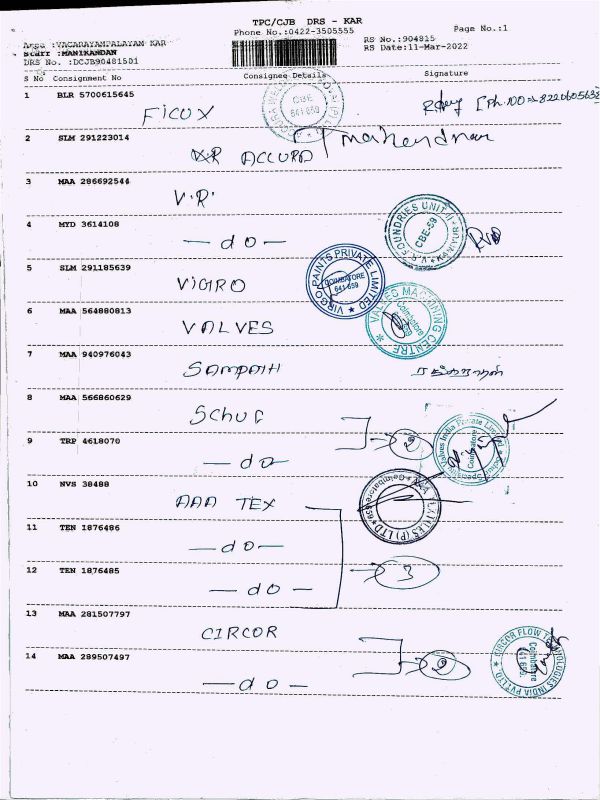 TPC/CJB DRS - KAR
Phone No.:0422-3505555
Page No.:1
Area :VAGARAYAMPALAYAM KAR
RS No.:904815
Staff :MANIKANDAN
RS Date:11-Mar-2022
DRS No. :DCJB90481501
S No Consignment No Consignee Details Signature
1 BLR 5700615645
FICUX
CBE 641 659
2 SLM 291223014
ACCURA
3 MAA 286692544
V.R.
4 MYD 3614108
— do —
FOUNDRIES UNIT-II
CBE-59
5 SLM 291185639
VIGRO
VIRGO PAINTS PRIVATE LIMITED
COIMBATORE 641 659
6 MAA 564880813
VALVES
VALVES MACHINING CENTRE
Coimbatore
7 MAA 940976043
SAMPATH
8 MAA 566860629
SCHUF
2
Schuf Speciality Valves India Private Limited
Coimbatore
9 TRP 4618070
— do —
10 NVS 38488
AAA TEX
Coimbatore-659
11 TEN 1876486
— do —
12 TEN 1876485
— do —
3
13 MAA 281507797
CIRCOR
2
CIRCOR FLOW TECHNOLOGIES INDIA PVT LTD.
Coimbatore
641 659.
14 MAA 289507497
— do —